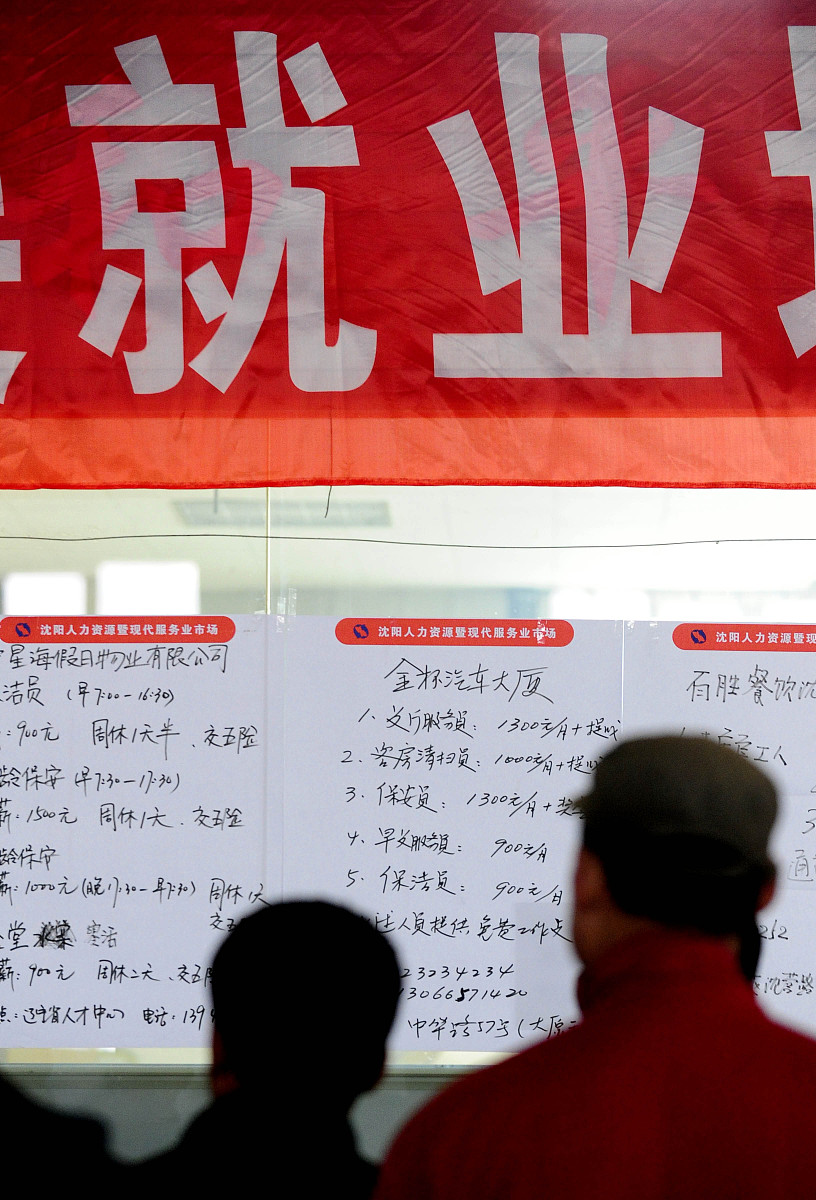 就业
沈阳人力资源暨现代服务业市场
星海假日物业有限公司
洁员 (早7:00-16:30)
:900元 周休1天半、交五险
龄保安 (早7:30-17:30)
薪:1500元 周休1天、交五险
龄保安
薪:1000元 (晚17:30-早7:30) 周休1天
交五
堂
薪:900元 周休二天、交五
点:辽宁省人才中心 电话:139
沈阳人力资源暨现代服务业市场
金杯汽车大厦
1. 服务员: 1300元/月+提
2. 客房清扫员: 1000元/月+提
3. 保安员: 1300元/月+
4. 早 服务员: 900元/月
5. 保洁员: 900元/月
人员提供免费工作
23234234
13066571420
中华路57号(太原
沈阳人力资源暨现
百胜餐饮沈
工人